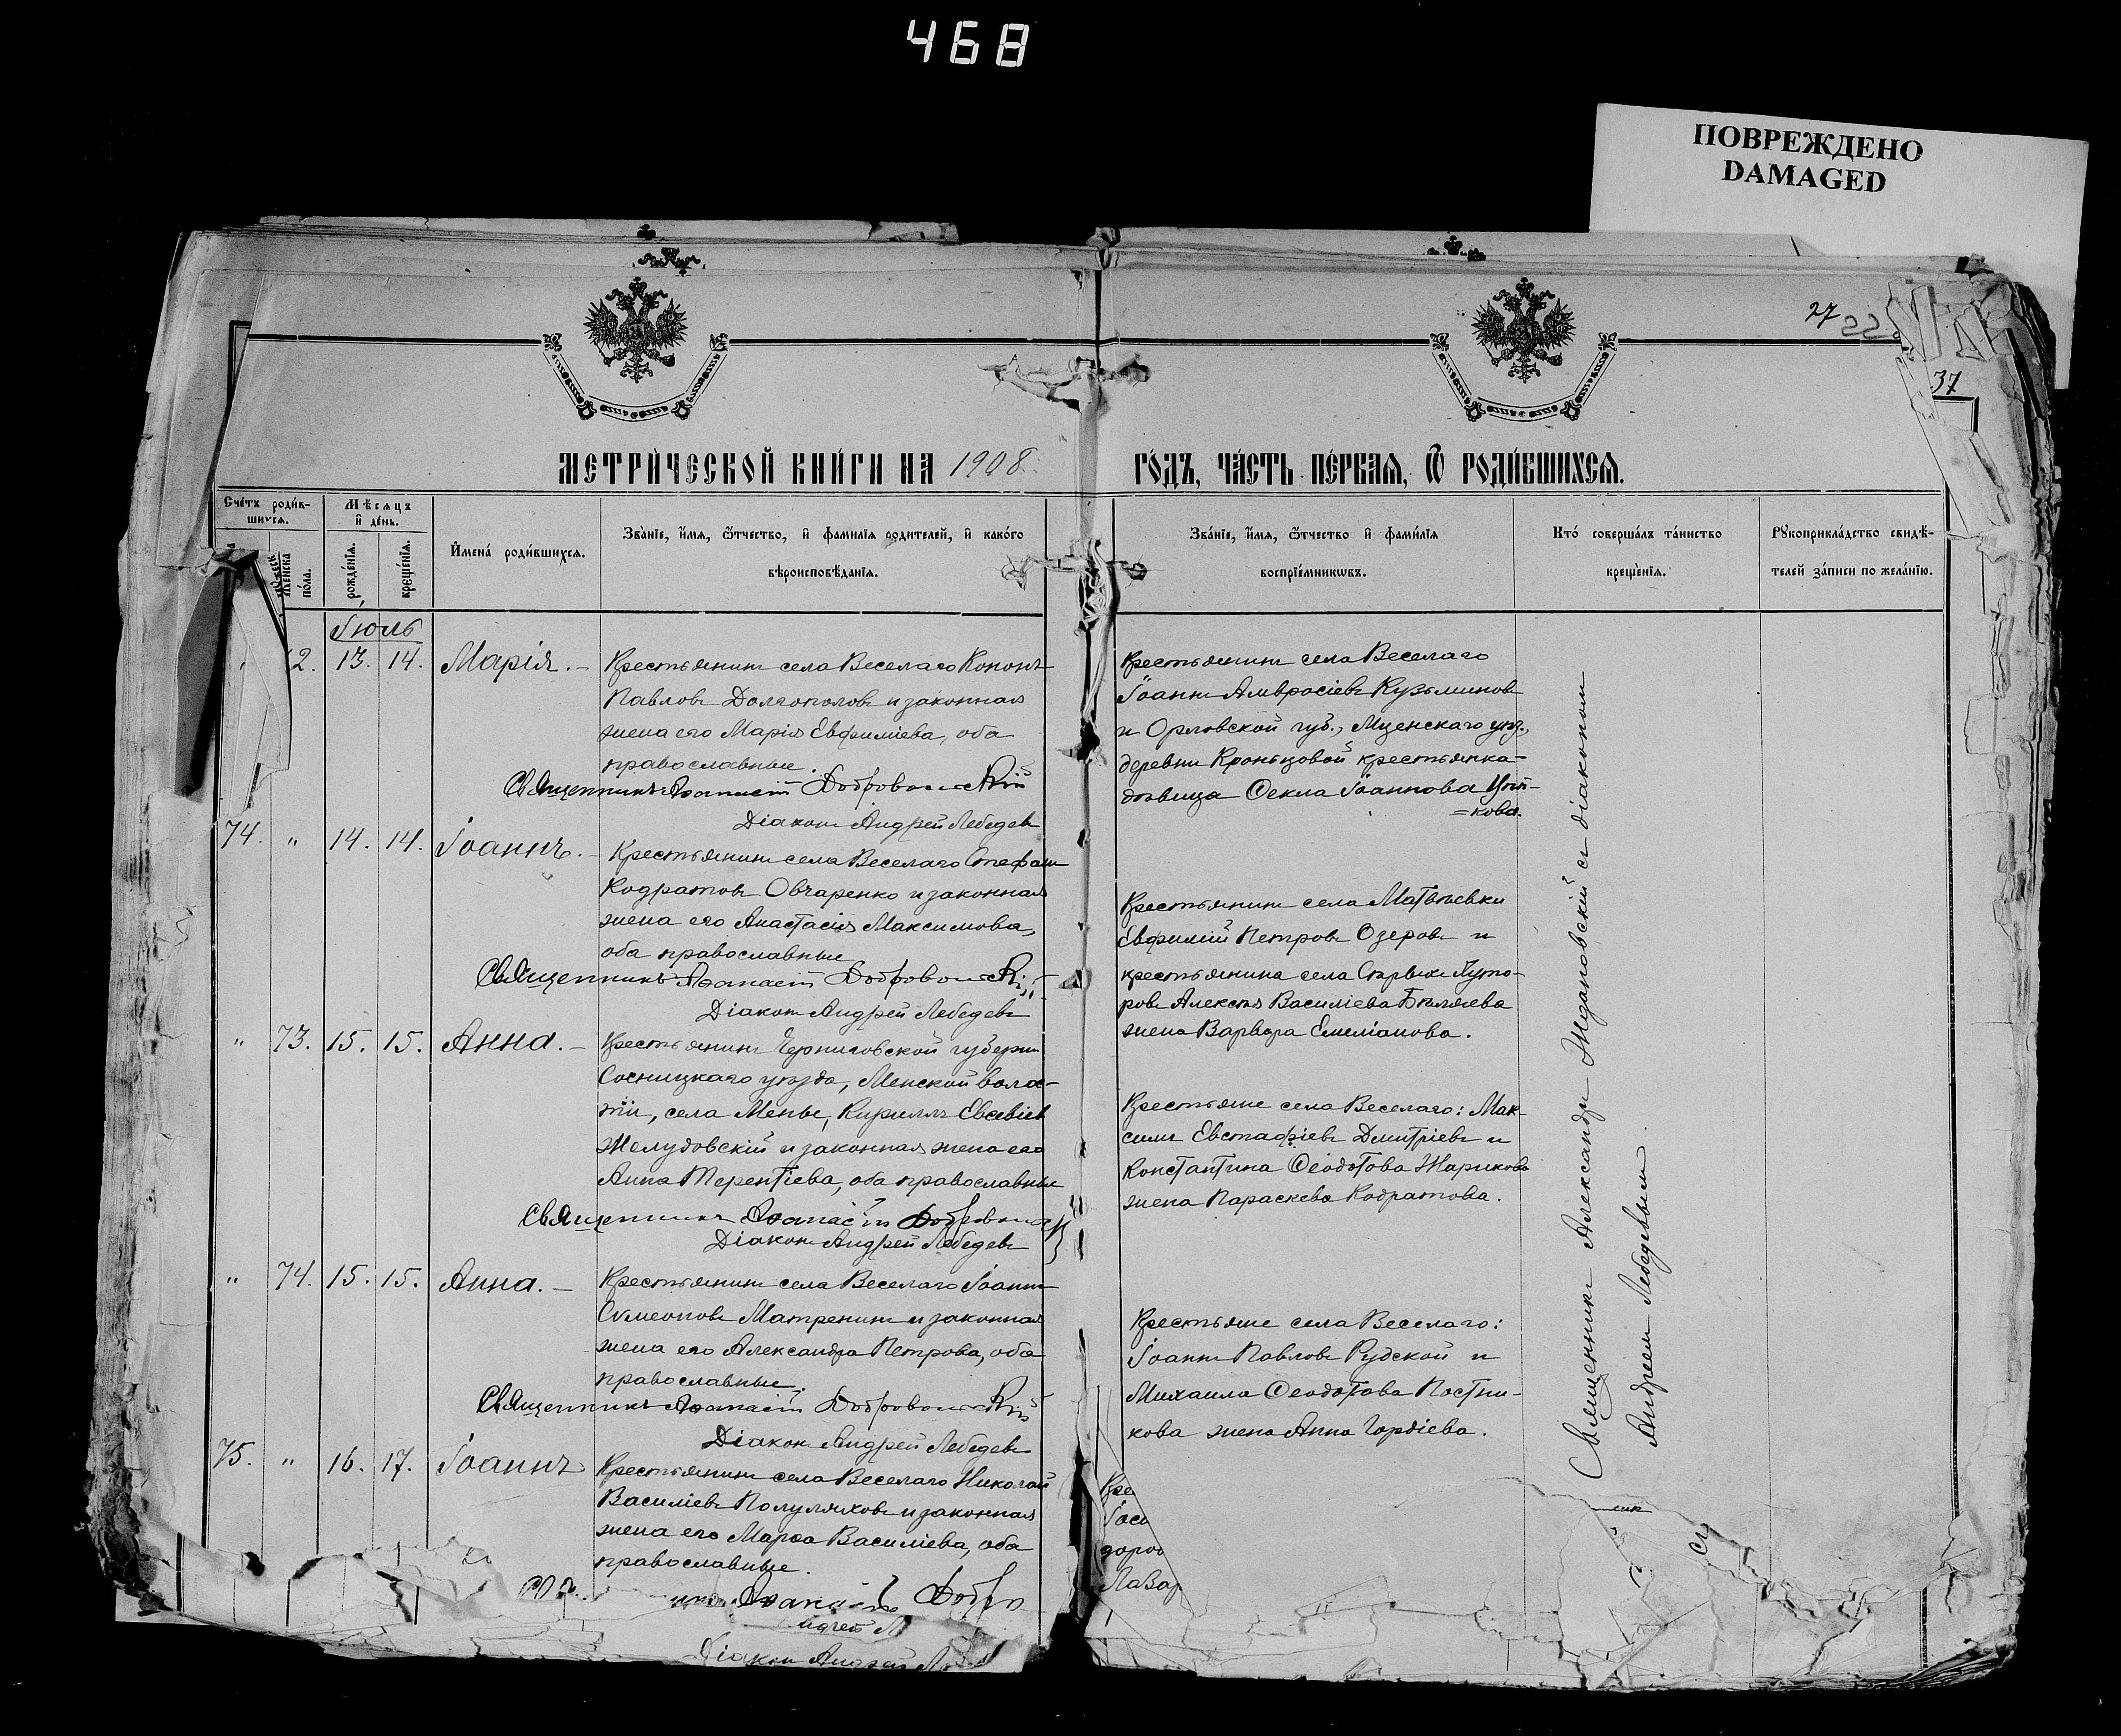 468
ПОВРЕЖДЕНО
DAMAGED
27
37
МЕТРИ́ЧЕСКОЙ КНИ́ГИ НА 1908
ГО́ДЪ, ЧА́СТЬ ПЕ́РВАЯ, Ѿ РОДИ́ВШИХСЯ.
Сче́тъ роди́в-
шихся.
Мѣсяцъ
и҆ де́нь.
Же́нска
по́ла.
рожде́нїя.
креще́нїя.
И҆мена́ роди́вшихся.
Зва́нїе, и҆́мя, ѻ҆́тчество, и҆ фами́лїя родителей, и҆ како́го
вѣроисповѣ́данїя.
Зва́нїе, и҆́мя, ѻ҆́тчество и҆ фами́лїя
воспрїе́мникѡвъ.
Кто́ соверша́лъ та́инство
креще́нїя.
Рꙋкоприкла́дство свидѣ́-
телей за́писи по жела́нїю.
Іюль
2. 13. 14. Марія. –
Крестьянинъ села Веселаго Кононъ
Павловъ Долгополовъ и законная
жена его Марія Евфиміева, оба
православные.
Священникъ Аѳанасій Добровольскій
Діаконъ Андрей Лебедевъ
Крестьянинъ села Веселаго
Іоаннъ Амвросіевъ Кузьминовъ
и Орловской губ., Мценскаго уѣз.,
деревни крестьянка-
дѣвица Ѳекла Іоаннова
=кова.
74. " 14. 14. Іоаннъ. –
Крестьянинъ села Веселаго Стефанъ
Кодратовъ Овчаренко и законная
жена его Анастасія Максимова,
оба православные
Священникъ Аѳанасій Добровольскій
Діаконъ Андрей Лебедевъ
Крестьянинъ села Матвѣевки
Евфимій Петровъ Озеровъ и
крестьянина села Старыхъ Туто-
ровъ Алексѣя Василіева Бѣляева
жена Варвара Емеліанова.
" 73. 15. 15. Анна. –
Крестьянинъ Черниговской губерн
Сосницкаго уѣзда, Менской волос-
тіи, села Мены, Кириллъ Евсевіевъ
Желудовскій и законная жена его
Анна Терентіева, оба православные
Священникъ Аѳанасій
Діаконъ Андрей Лебедевъ
Крестьяне села Веселаго: Мак-
симъ Евстафіевъ Дмитріевъ и
Константина Ѳеодотова Жарикова
жена Параскева Кодратова.
" 74. 15. 15. Анна. –
Крестьянинъ села Веселаго Іоаннъ
Сѵмеоновъ Матренинъ и законная
жена его Александра Петрова, оба
православные.
Священникъ Аѳанасій Добровольскій
Діаконъ Андрей Лебедевъ
Крестьяне села Веселаго:
Іоаннъ Павловъ Рудской и
Михаила Ѳеодотова Постни-
кова жена Анна Гордіева.
75. " 16. 17. Іоаннъ
Крестьянинъ села Веселаго Николай
Василіевъ Полуляховъ и законная
жена его Марѳа Василіева, оба
православные.
Аѳанасій Добро
Діаконъ Андрей
Кре
дорог
Лазар
Священникъ Александръ Ждановскій съ діакономъ
Андреемъ Лебедевымъ.